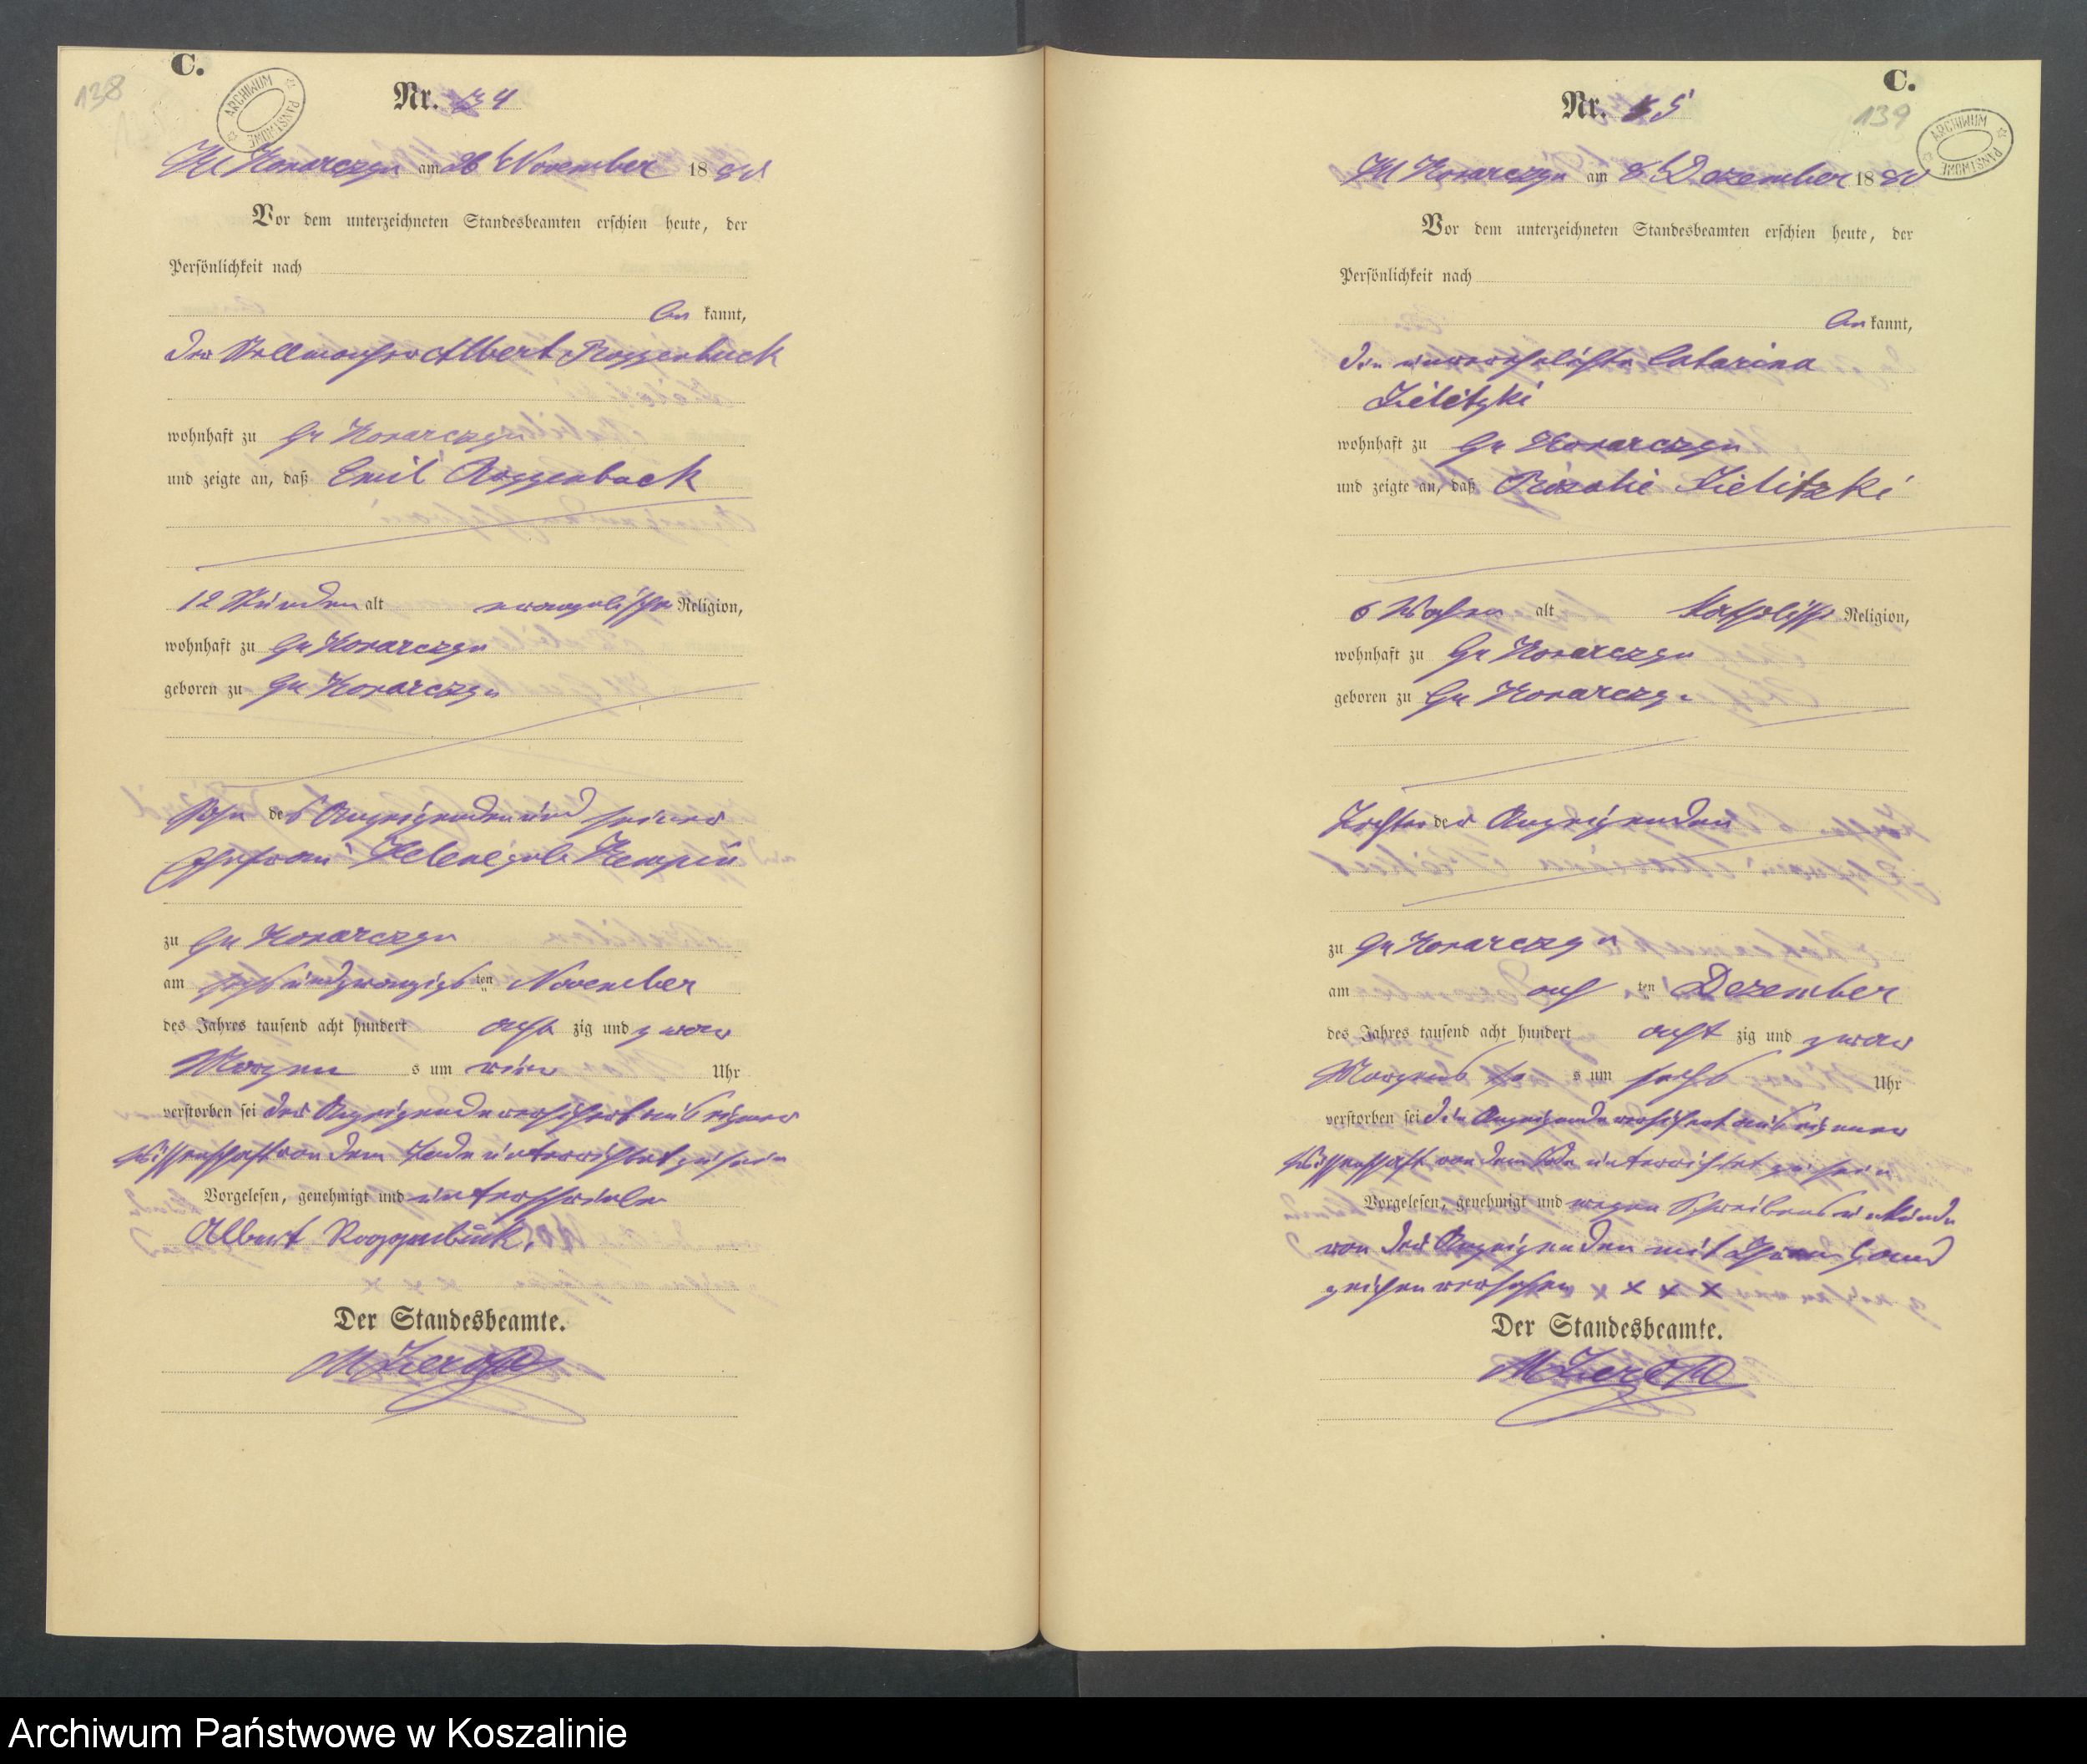 138
C.
ARCHIWUM PAŃSTWOWE
Nr. 34
Kl Konarczyn am 26 November 1880
Vor dem unterzeichneten Standesbeamten erschien heute, der
Persönlichkeit nach
be kannt,
der Stellmacher Albert Roggenbuck
wohnhaft zu Gr Konarczyn
und zeigte an, daß Emil Roggenbuck
12 Stunden alt evangelischer Religion,
wohnhaft zu Gr Konarczyn
geboren zu Gr Konarczyn
Sohn des Anzeigenden und seiner
Ehefrau Helene geb. Kempin
zu Gr Konarczyn
am sechsundzwanzigsten November
des Jahres tausend acht hundert acht zig und zwar
Morgen s um vier Uhr
verstorben sei der Anzeigende versichert aus eigener
Wissenschaft von dem Tode unterrichtet zu sein
Vorgelesen, genehmigt und unterschrieben
Albert Roggenbuck.
Der Standesbeamte.
C.
139
ARCHIWUM PAŃSTWOWE
Nr. 35
Kl Konarczyn am 8 Dezember 1880
Vor dem unterzeichneten Standesbeamten erschien heute, der
Persönlichkeit nach
be kannt,
die unverehelichte Catarina
Zielitzki
wohnhaft zu Gr Konarczyn
und zeigte an, daß Rosalie Zielitzki
6 Wochen alt katholischer Religion,
wohnhaft zu Gr Konarczyn
geboren zu Gr Konarczyn
Tochter der Anzeigenden
zu Gr Konarczyn
am acht ten Dezember
des Jahres tausend acht hundert acht zig und zwar
Morgens s um sechs Uhr
verstorben sei die Anzeigende versichert aus eigener
Wissenschaft von dem Tode unterrichtet zu sein
Vorgelesen, genehmigt und wegen Schreibensunkunde
von der Anzeigenden mit Ihrem Hand
zeichen versehen x x x x
Der Standesbeamte.
Archiwum Państwowe w Koszalinie